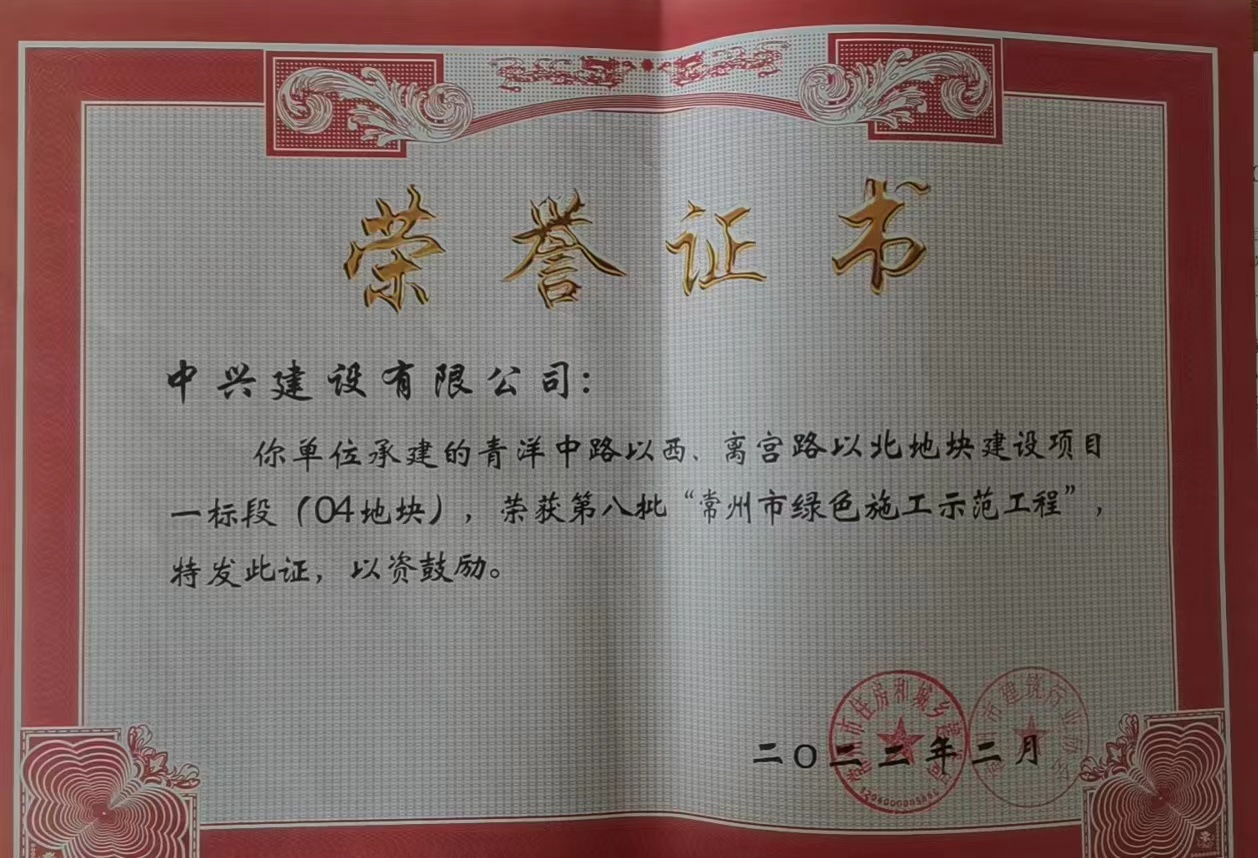 荣誉证书
中兴建设有限公司：
你单位承建的青洋中路以西、离宫路以北地块建设项目
一标段（04地块），荣获第八批“常州市绿色施工示范工程”，
特发此证，以资鼓励。
市住房和城乡建
市建筑行业协
二〇二三年二月